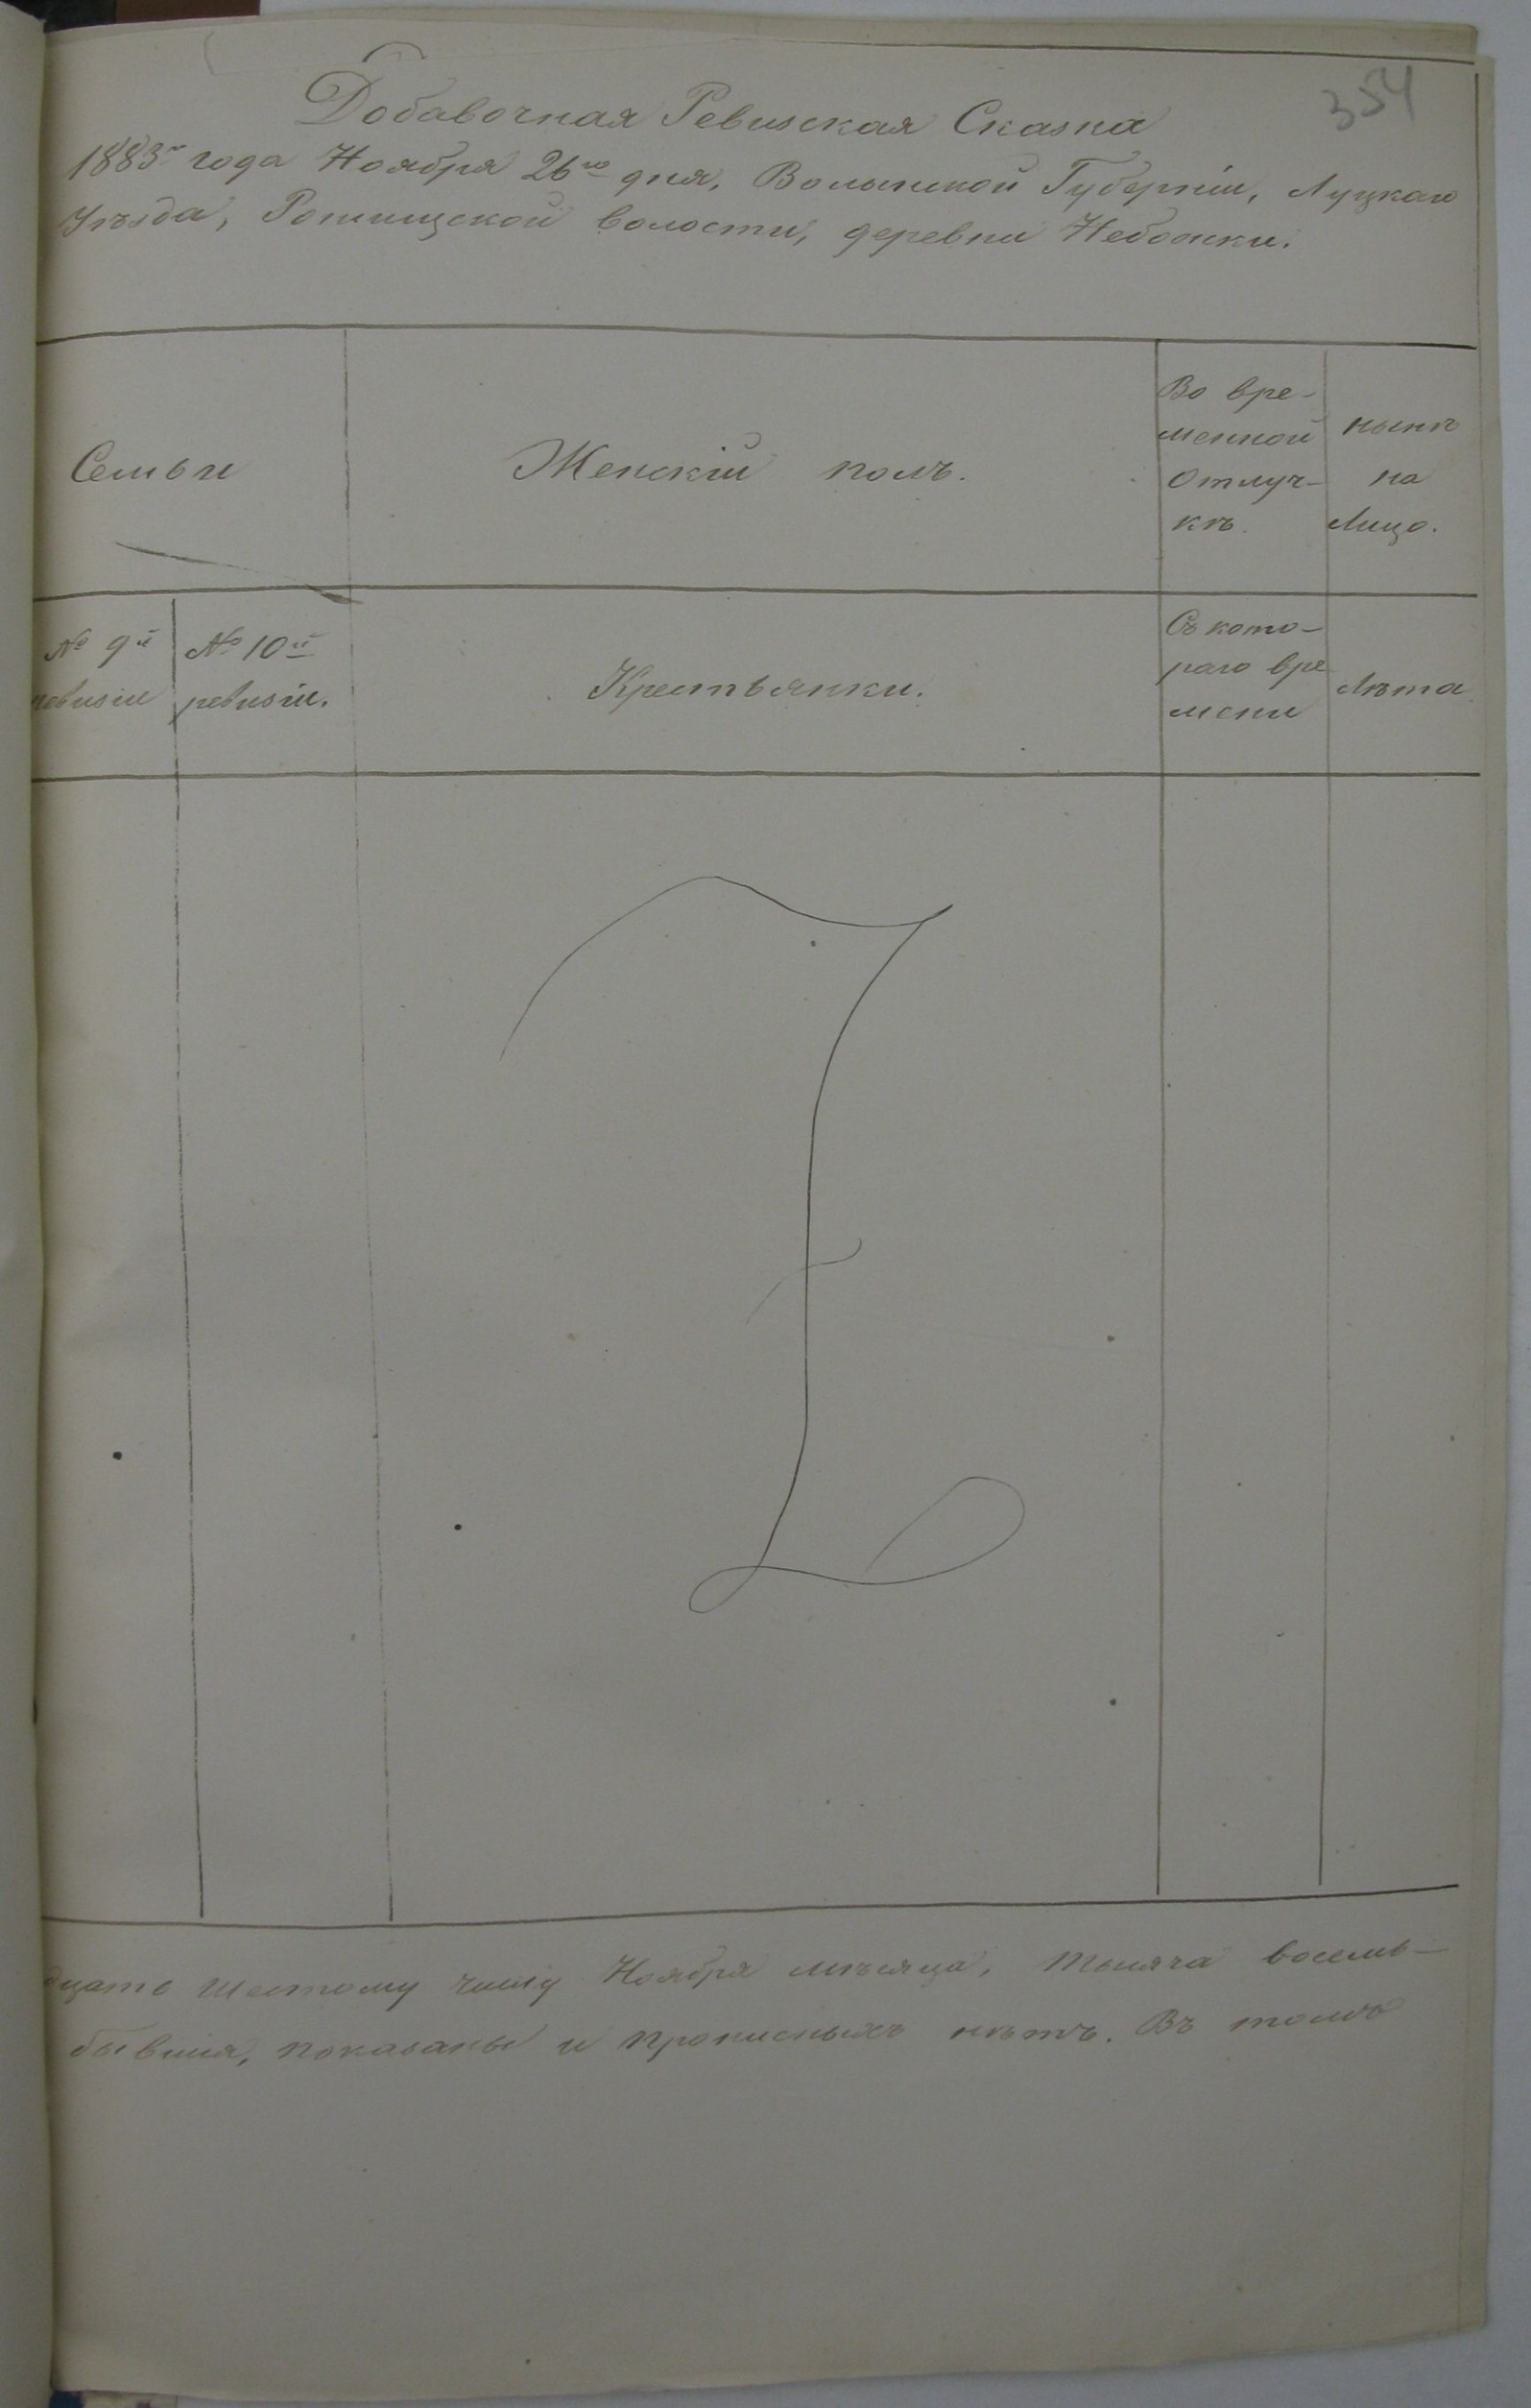 354
Добавочная Ревизская Сказка
1883го года Ноября 26го дня, Волынской Губерніи, Луцкаго
Уѣзда, Рожищской волости, деревни Небожки.
Семьи
Женскій полъ.
Во вре-
менной
отлуч-
кѣ.
нынѣ
на
Лицо.
№ 9й
ревизіи
№ 10й
ревизіи.
Крестьянки.
Съ кото-
раго вре
мени
Лѣта
дцать шестому числу Ноября мѣсяца, тысяча восемь-
бывшія, показаны и прописныхъ нѣтъ. Въ томъ